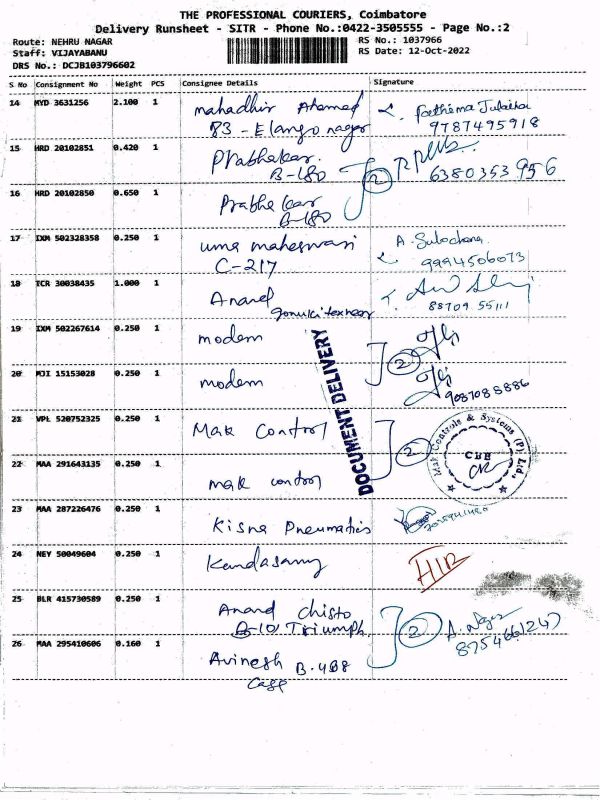 THE PROFESSIONAL COURIERS, Coimbatore
Delivery Runsheet - SITR - Phone No.:0422-3505555 - Page No.:2
Route: NEHRU NAGAR
RS No.: 1037966
Staff: VIJAYABANU
RS Date: 12-Oct-2022
DRS No.: DCJB103796602
S No Consignment No Weight PCS Consignee Details Signature
14 MYD 3631256 2.100 1 mahadhir Ahamed Fathima
83 - Elango nagar 9787495918
15 HRD 20102851 0.420 1 Prabhakar
B-180 2 6380353956
16 HRD 20102850 0.650 1 Prabhakar
B-180
17 IXM 502328358 0.250 1 uma maheswari A. Sulochana
C-217 9994506073
18 TCR 30038435 1.000 1 Anand
88709 55111
19 IXM 502267614 0.250 1 modem
2
20 MJI 15153028 0.250 1 modem
9087088886
DOCUMENT DELIVERY
21 VPL 520752325 0.250 1 Mak Control
2
Mak Controls & Systems (P) Ltd.,
CBE
22 MAA 291643135 0.250 1 mak control
23 MAA 287226476 0.250 1 Kisna Pneumatics
24 NEY 50049604 0.250 1 Kandasamy
25 BLR 415730589 0.250 1 Anand Chisto
B-101 Triumph 2
8754661247
26 MAA 295410606 0.160 1 Avinesh B-408